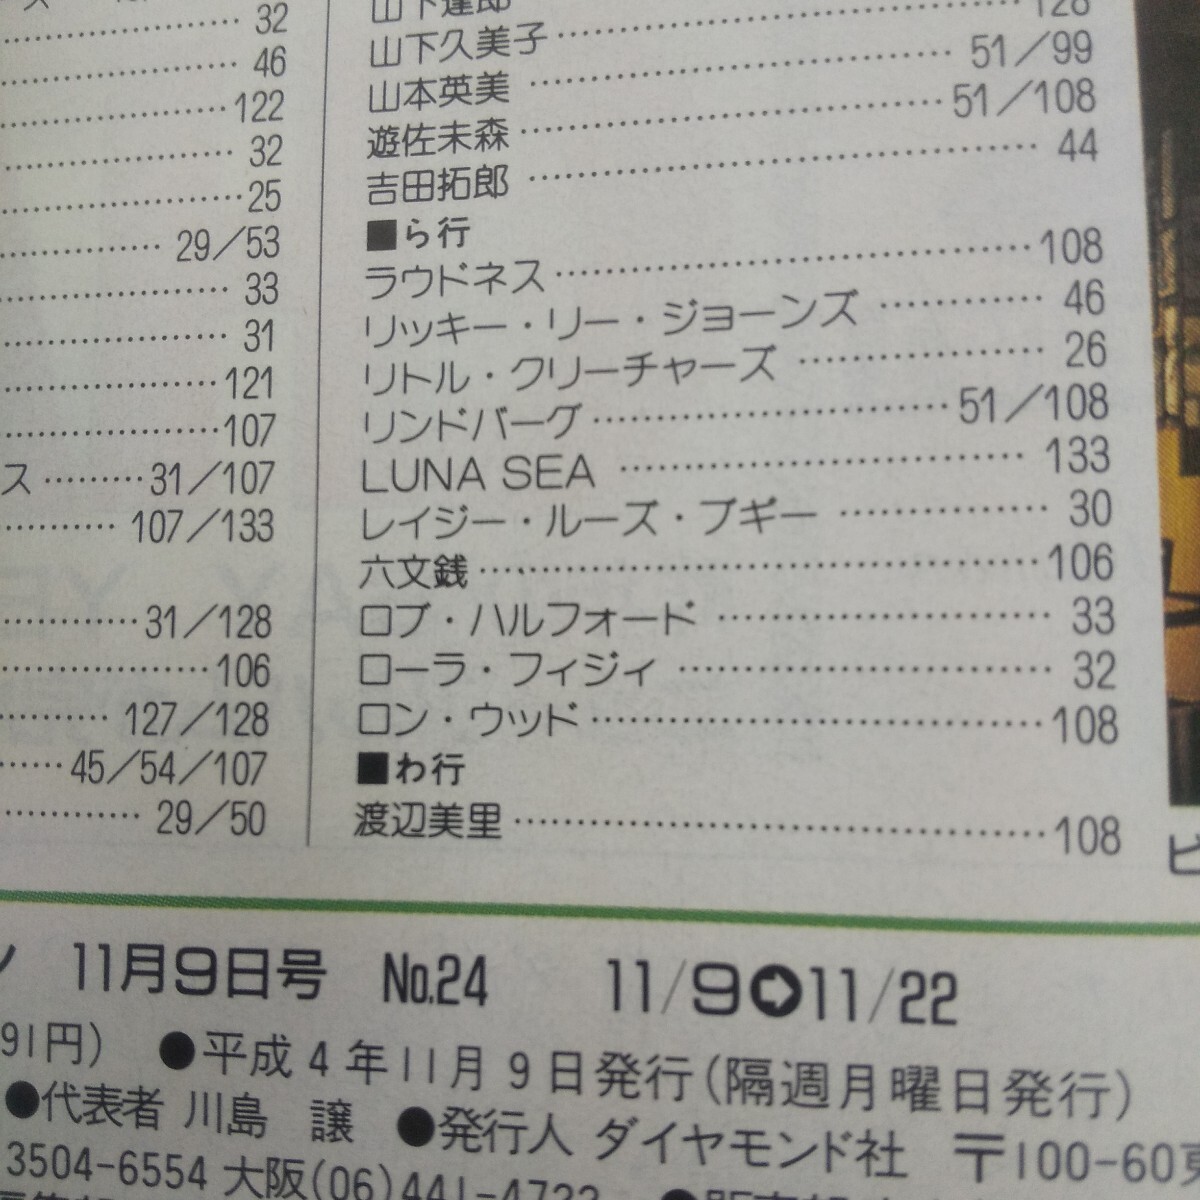 32
46
122
32
25
29/53
33
31
121
107
ス 31/107
107/133
31/128
106
127/128
45/54/107
29/50
山下達郎 128
山下久美子
山本英美 51/99
遊佐未森 51/108
吉田拓郎 44
■ら行
ラウドネス 108
リッキー・リー・ジョーンズ 46
リトル・クリーチャーズ 26
リンドバーグ 51/108
LUNA SEA 133
レイジー・ルーズ・ブギー 30
六文銭 106
ロブ・ハルフォード 33
ローラ・フィジィ 32
ロン・ウッド 108
■わ行
渡辺美里 108
ン 11月9日号 No.24 11/9➲11/22
91円) ●平成4年11月9日発行(隔週月曜日発行)
●代表者 川島 譲 ●発行人 ダイヤモンド社 〒100-60
3504-6554 大阪(06)441-4722